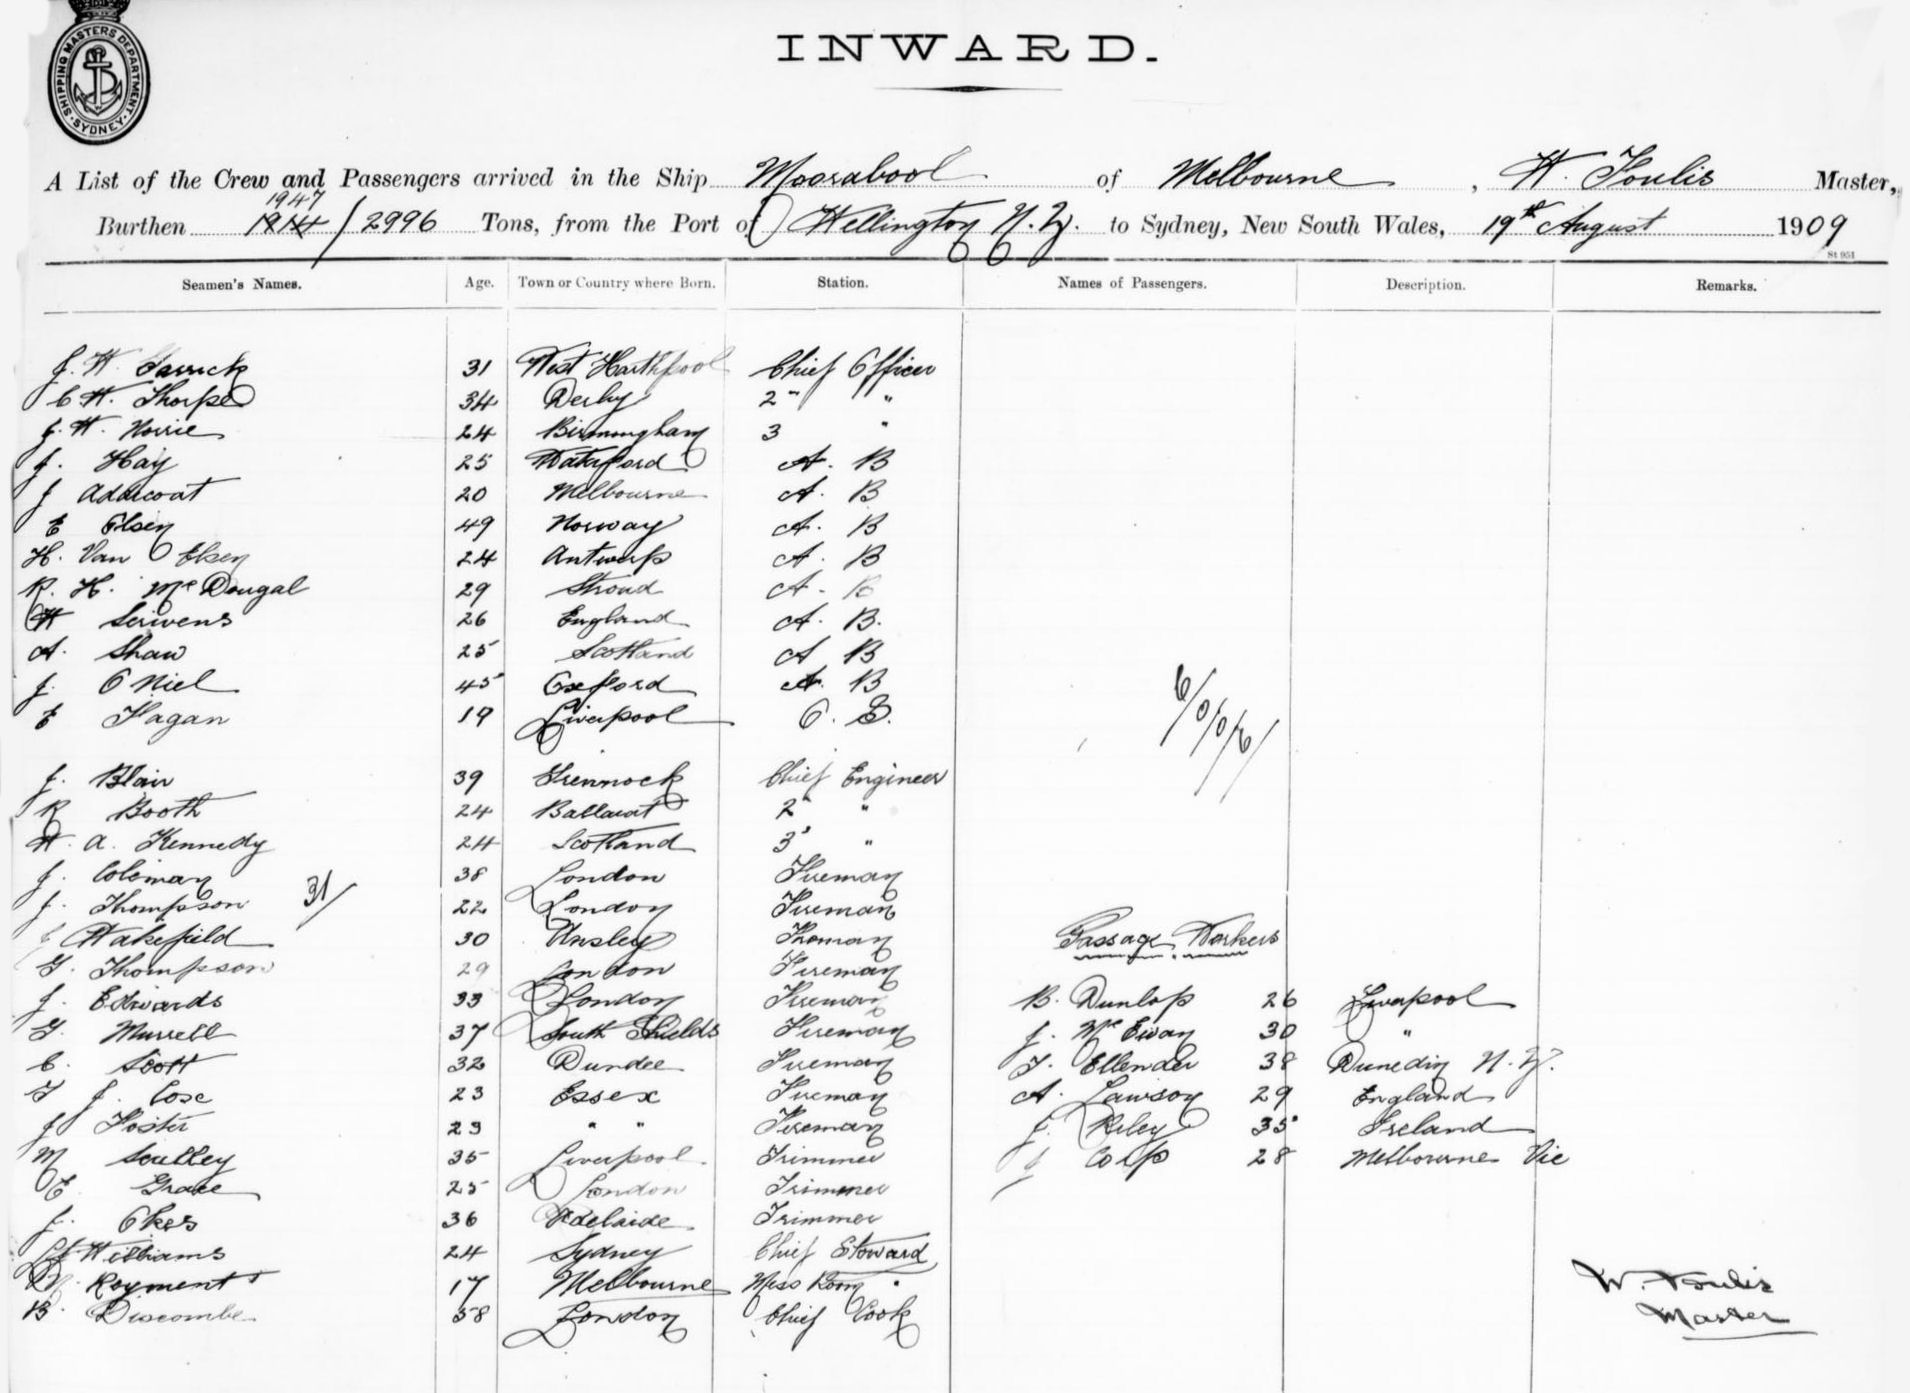 SHIPPING MASTERS DEPARTMENT. SYDNEY.
INWARD.
A List of the Crew and Passengers arrived in the Ship Moorabool of Melbourne, W. Foulis Master,
1947
Burthen 1914 / 2996 Tons, from the Port of Wellington N.Z. to Sydney, New South Wales, 19th August 1909
St 951
Seamen's Names. Age. Town or Country where Born. Station. Names of Passengers. Description. Remarks.
J. W. 31 West Harthpool Chief Officer
C. W. Thorpe 34 Derby 2 " "
J. W. Norrie 24 Birmingham 3 "
J. Hay 25 Watrford A. B
J Addicoat 20 Melbourne A. B
E Olsen 49 Norway A. B
H. Van Elsen 24 Antwerp A. B
R. H. McDougal 29 Stroud A. B
W Scrivens 26 England A. B.
A. Shaw 25 Scotland A B
J. O Niel 45 Oxford A. B
E Hagan 19 Liverpool O. S.
6/0/0/6/
J. Blair 39 Grennock Chief Engineer
R Booth 24 Ballarat 2 " "
W. A. Kennedy 24 Scotland 3 " "
J. Coleman 38 London Fireman
J. Thompson 31/ 22 London Fireman
J Wakefield 30 Fireman Passage Workers
G. Thompson 29 London Fireman
J. Edwards 33 London Fireman B. Dunlop 26 Liverpool
G. Murrell 37 South Shields Fireman J. McEwan 30 "
C. Scott 32 Dundee Fireman T. Ellender 38 Dunedin N.Z.
T J. Cose 23 Essex Fireman A. Lawson 29 England
J Foster 23 " " Fireman J. Riley 35 Ireland
M Sculley 35 Liverpool Trimmer J Colp 28 Melbourne Vic
E. Grace 25 London Trimmer
J. Okes 36 Adelaide Trimmer
Williams 24 Sydney Chief Steward
Rayment 17 Melbourne Mess Room " W. Foulis
B. Discombe 58 London Chief Cook Master